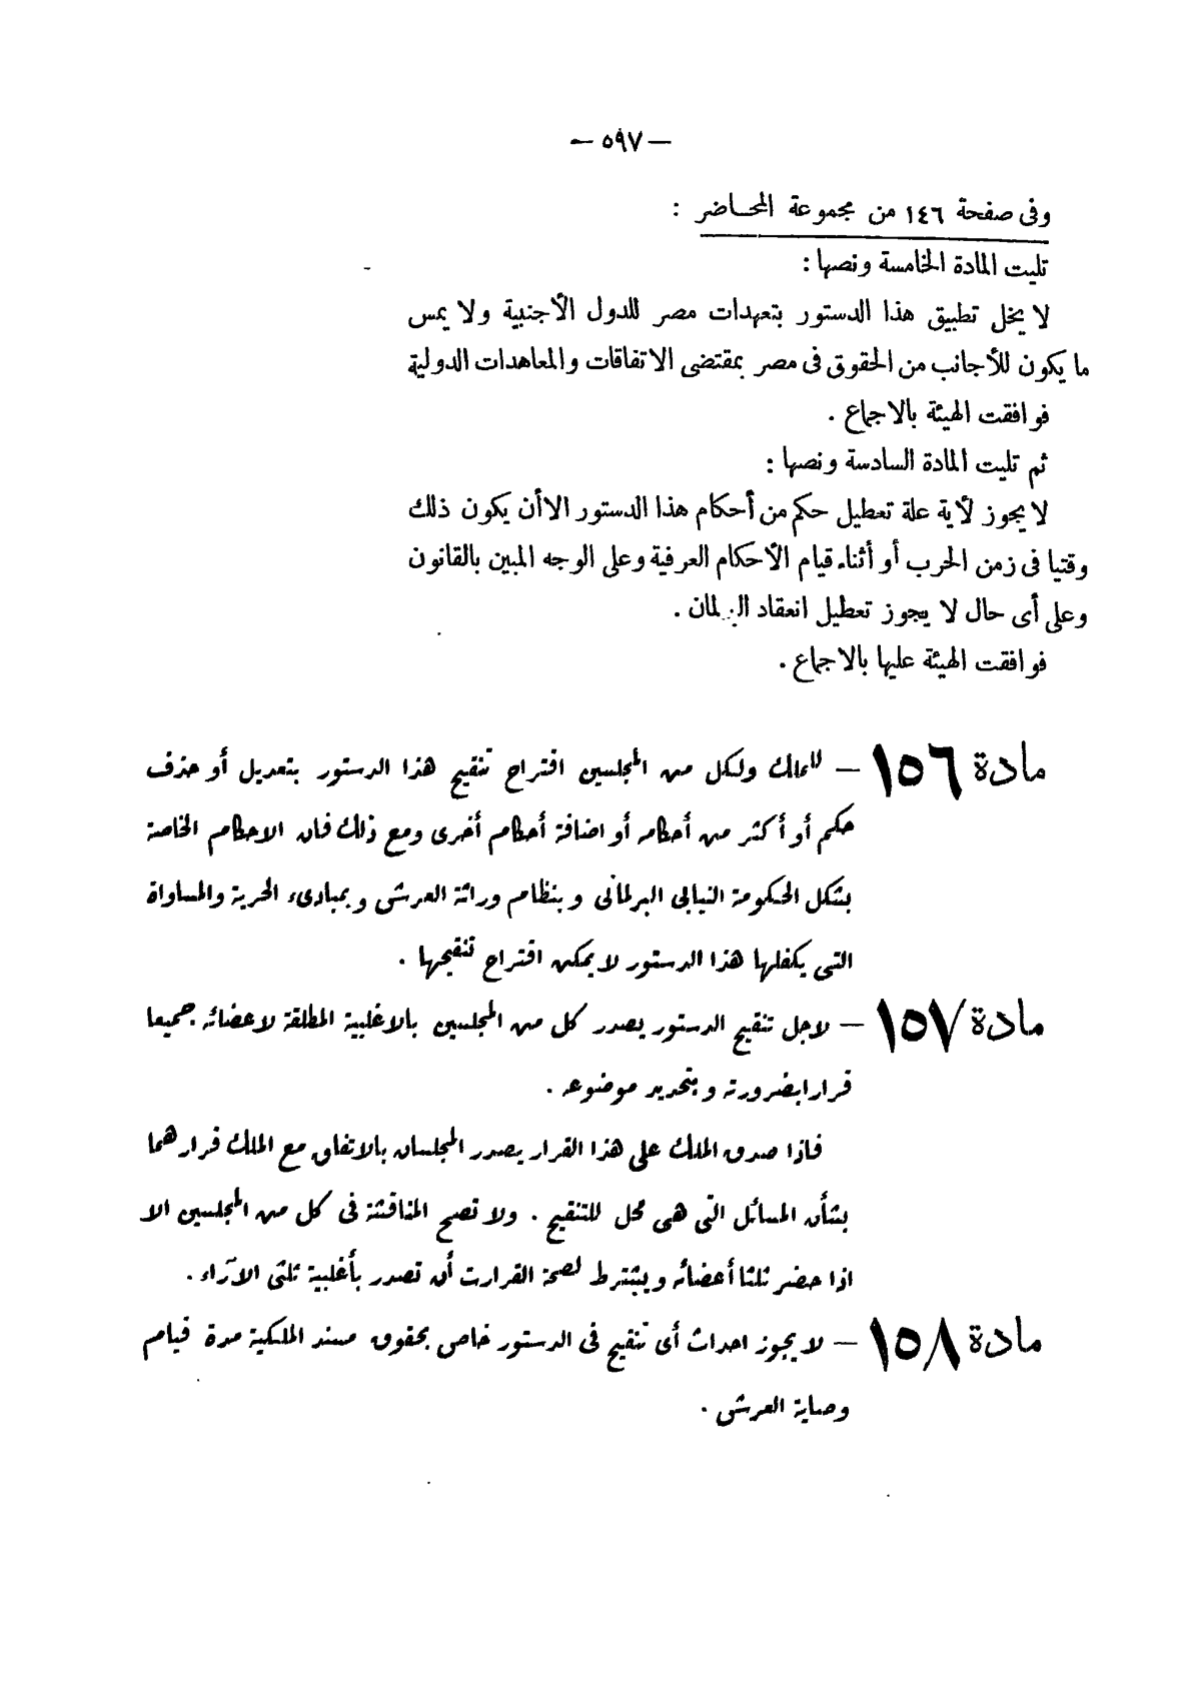 — ٥٩٧ —
وفى صفحة ١٤٦ من مجموعة المحاضر :
تليت المادة الخامسة ونصها :
لا يخل تطبيق هذا الدستور بتعهدات مصر للدول الأجنبية ولا يمس
ما يكون للأجانب من الحقوق فى مصر بمقتضى الاتفاقات والمعاهدات الدولية
فوافقت الهيئة بالاجماع .
ثم تليت المادة السادسة ونصها :
لا يجوز لأية علة تعطيل حكم من أحكام هذا الدستور الا أن يكون ذلك
وقتيا فى زمن الحرب أو أثناء قيام الأحكام العرفية وعلى الوجه المبين بالقانون
وعلى أى حال لا يجوز تعطيل انعقاد البرلمان .
فوافقت الهيئة عليها بالاجماع .
مادة ١٥٦ — للملك ولكل من المجلسين اقتراح تنقيح هذا الدستور بتعديل أو حذف
حكم أو أكثر من أحكامه أو اضافة أحكام أخرى ومع ذلك فان الاحكام الخاصة
بشكل الحكومة النيابى البرلمانى وبنظام وراثة العرش وبمبادىء الحرية والمساواة
التى يكفلها هذا الدستور لا يمكن اقتراح تنقيحها .
مادة ١٥٧ — لاجل تنقيح الدستور يصدر كل من المجلسين بالاغلبية المطلقة لاعضائه جميعا
قرارا بضرورته وبتحديد موضوعه .
فاذا صدق الملك على هذا القرار يصدر المجلسان بالاتفاق مع الملك قرارهما
بشأن المسائل التى هى محل للتنقيح . ولا تصح المناقشة فى كل من المجلسين الا
اذا حضر ثلثا أعضائه ويشترط لصحة القرارت أن تصدر بأغلبية ثلثى الآراء .
مادة ١٥٨ — لا يجوز احداث أى تنقيح فى الدستور خاص بحقوق مسند الملكية مدة قيام
وصاية العرش .